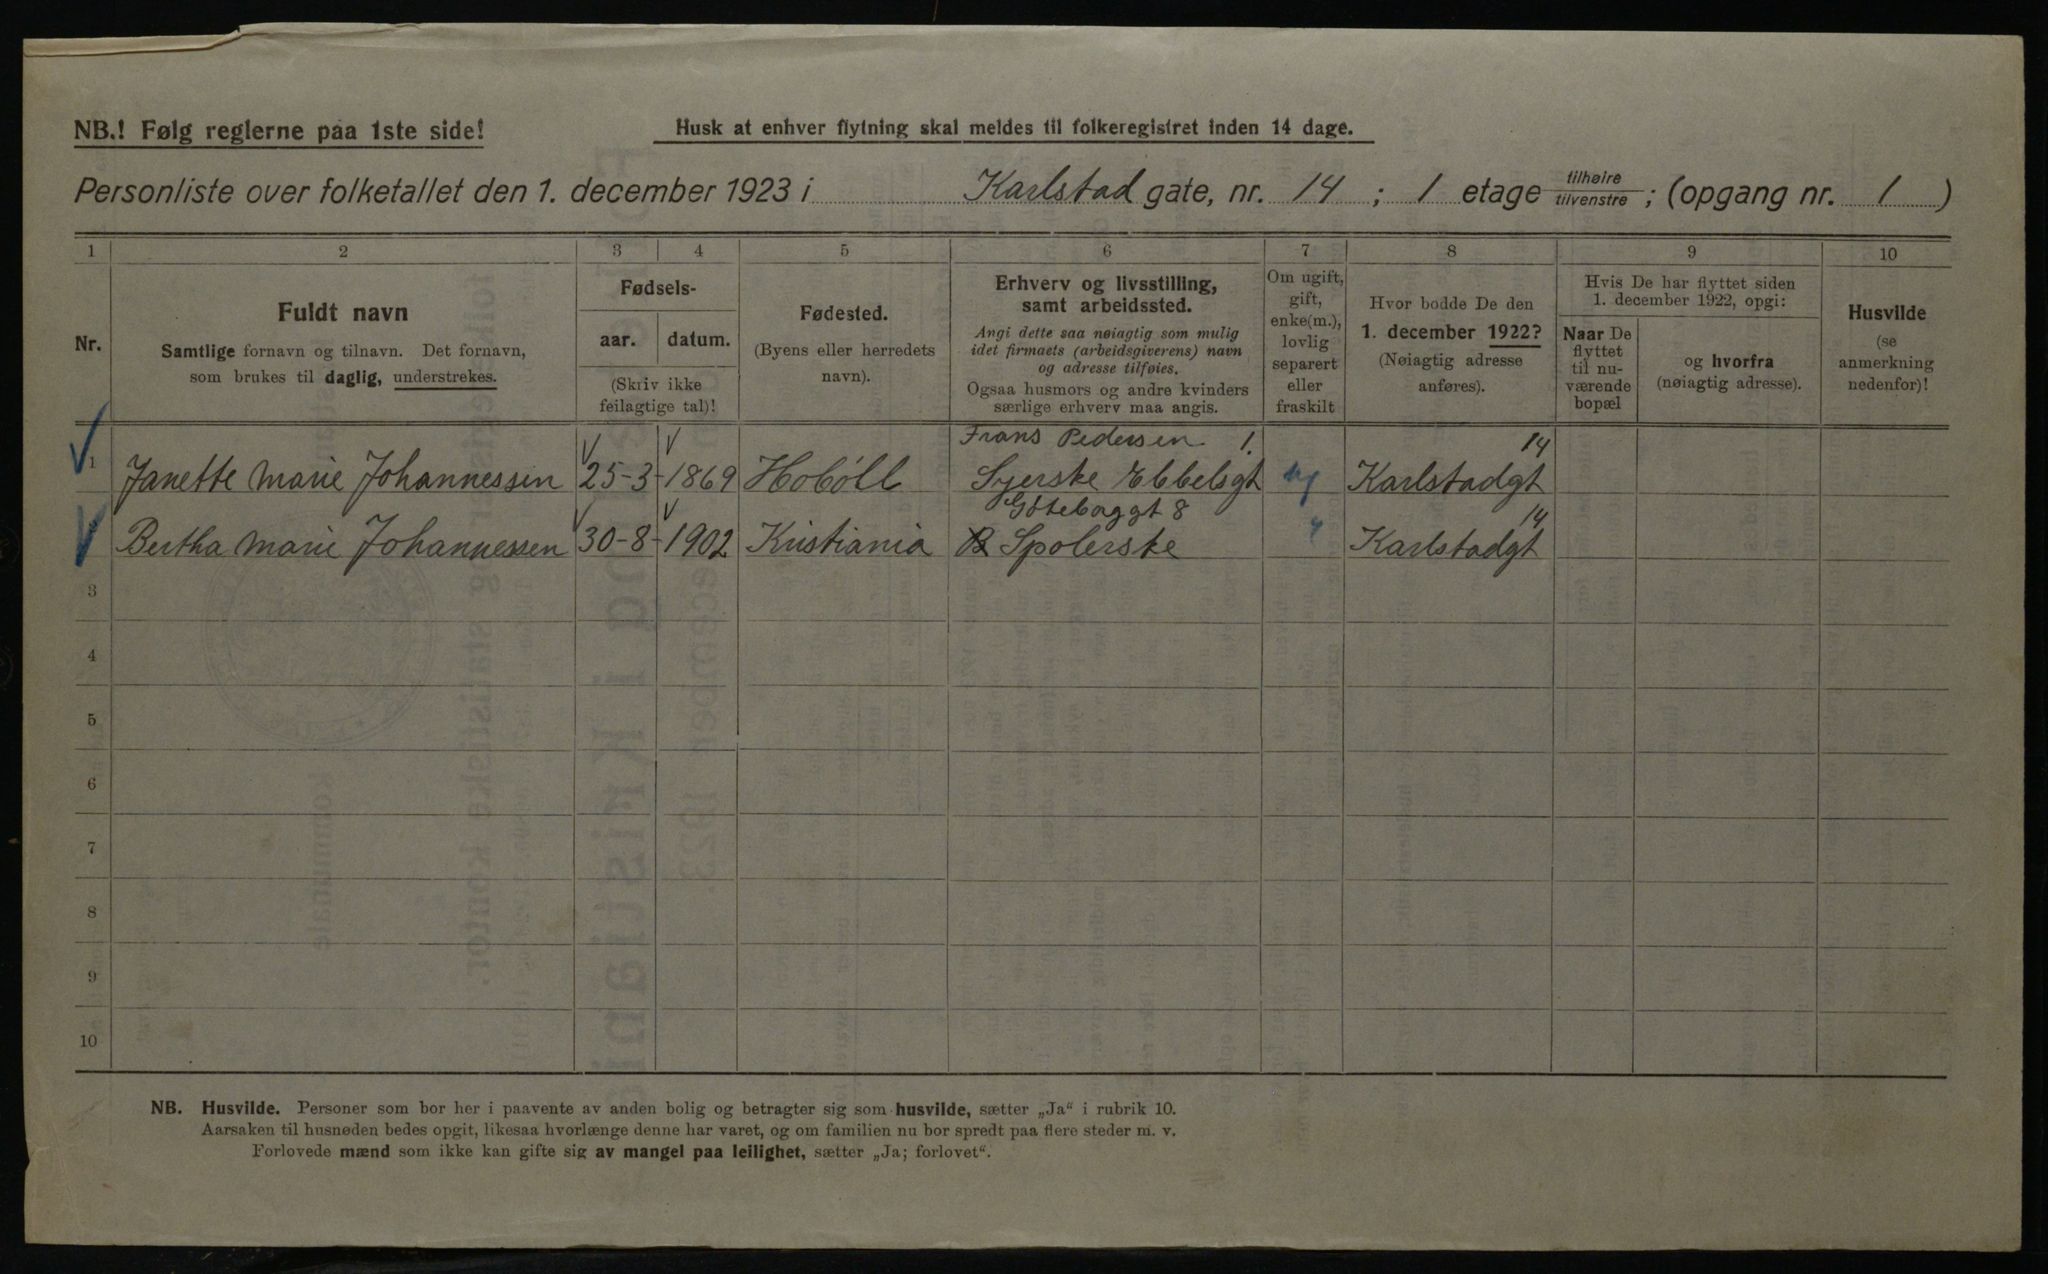 NB.! Følg reglerne paa 1ste side!
Husk at enhver flytning skal meldes til folkeregistret inden 14 dage.
Personliste over folketallet den 1. december 1923 i Karlstad gate, nr. 14 ; 1 etage tilhøire/tilvenstre ; (opgang nr. 1 )
1 2 3 4 5 6 7 8 9 10
Nr.
Fuldt navn
Samtlige fornavn og tilnavn. Det fornavn,
som brukes til daglig, understrekes.
Fødsels-
aar. datum.
(Skriv ikke
feilagtige tal)!
Fødested.
(Byens eller herredets
navn).
Erhverv og livsstilling,
samt arbeidssted.
Angi dette saa nøiagtig som mulig
idet firmaets (arbeidsgiverens) navn
og adresse tilføies.
Ogsaa husmors og andre kvinders
særlige erhverv maa angis.
Om ugift,
gift,
enke(m.),
lovlig
separert
eller
fraskilt
Hvor bodde De den
1. december 1922?
(Nøiagtig adresse
anføres).
Hvis De har flyttet siden
1. december 1922, opgi:
Naar De
flyttet
til nu-
værende
bopæl
og hvorfra
(nøiagtig adresse).
Husvilde
(se
anmerkning
nedenfor)!
Frans Pedersen 1. 14
1 Janette Marie Johannessen 25-3-1869 Hobøll Syerske Ebbelsgt ug Karlstadgt
Gøteboggt 8 14
Bertha Marie Johannessen 30-8-1902 Kristiania Spolerske Karlstadgt
3
4
5
6
7
8
9
10
NB. Husvilde. Personer som bor her i paavente av anden bolig og betragter sig som husvilde, sætter „Ja“ i rubrik 10.
Aarsaken til husnøden bedes opgit, likesaa hvorlænge denne har varet, og om familien nu bor spredt paa flere steder m. v.
Forlovede mænd som ikke kan gifte sig av mangel paa leilighet, sætter „Ja; forlovet“.